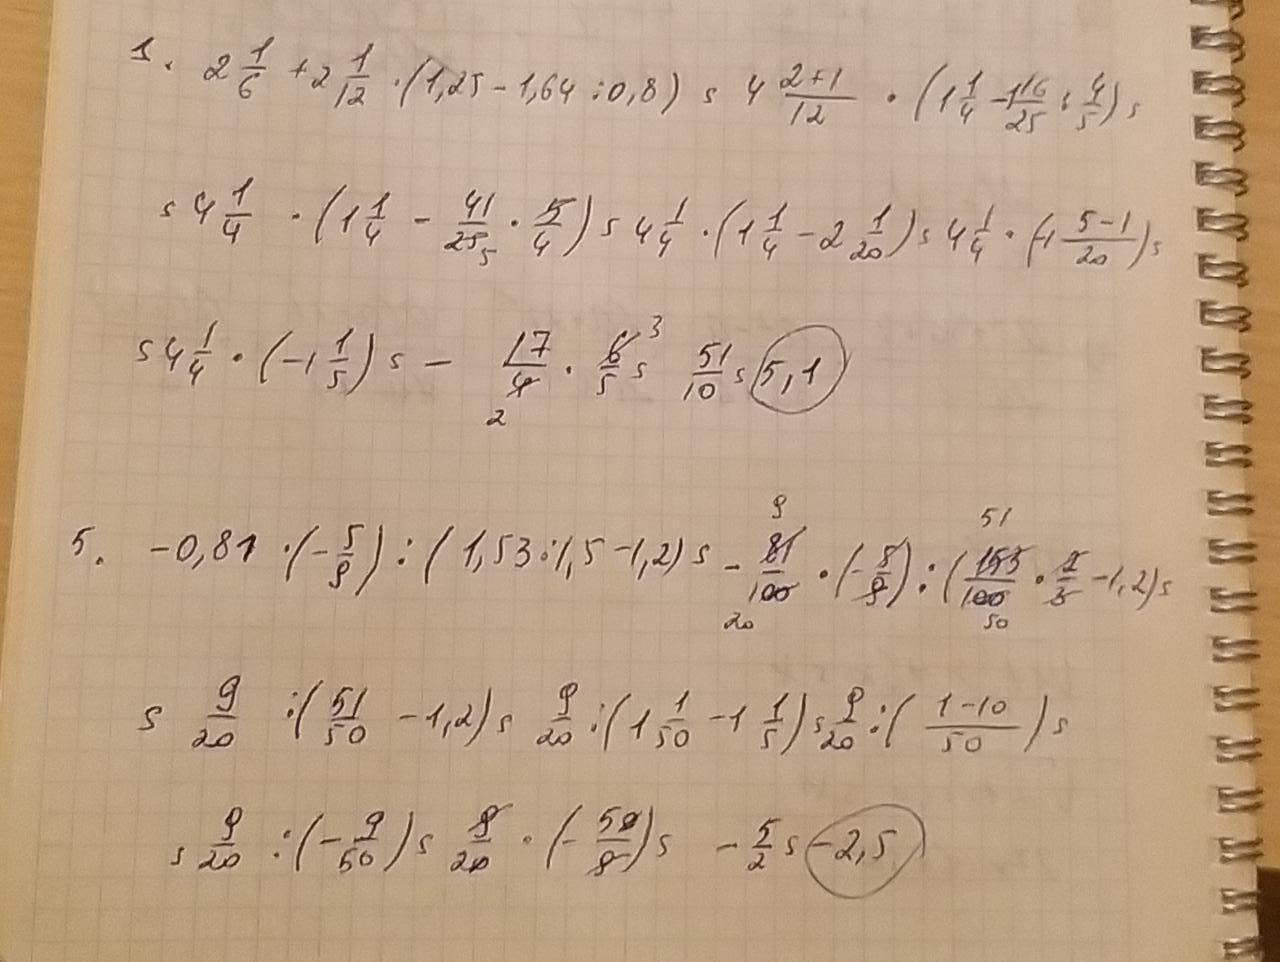 1. 2 1/6 + 2 1/12 · (1,25 - 1,64 : 0,8) = 4 (2+1)/12 · (1 1/4 - 1 16/25 : 4/5) =
= 4 1/4 · (1 1/4 - 41/25 5 · 5/4) = 4 1/4 · (1 1/4 - 2 1/20) = 4 1/4 · (-1 (5-1)/20) =
= 4 1/4 · (-1 1/5) = - 17/4 2 · 6/5 3 = 51/10 = 5,1
5. -0,81 · (-5/9) : (1,53 : 1,5 - 1,2) = - 81/100 9 20 · (-5/9) : (153/100 51 50 · 2/3 - 1,2) =
= 9/20 : (51/50 - 1,2) = 9/20 : (1 1/50 - 1 1/5) = 9/20 : ((1-10)/50) =
= 9/20 : (-9/50) = 9/20 · (-50/9) = - 5/2 = -2,5